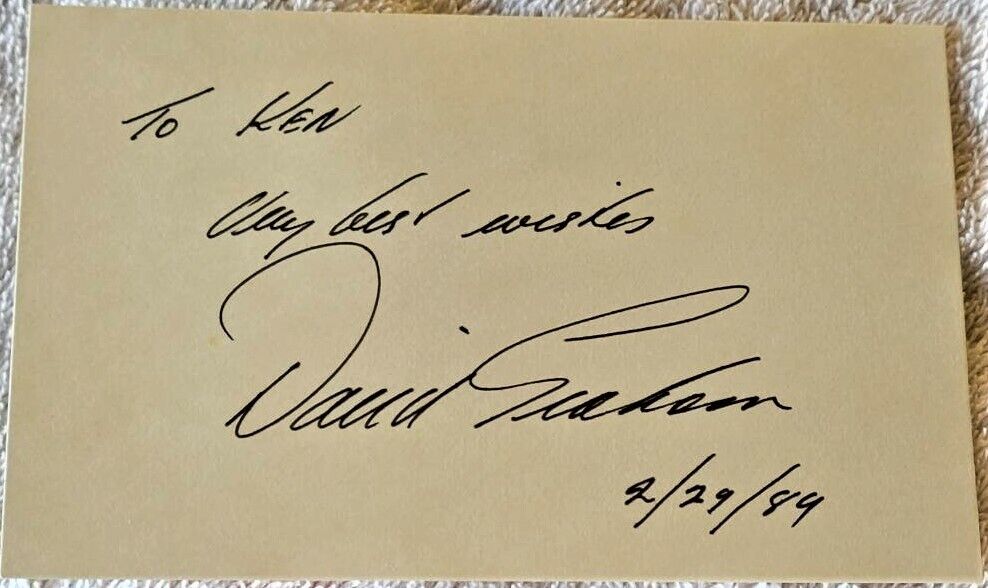 To KEN
Very best wishes
David Graham
2/29/84